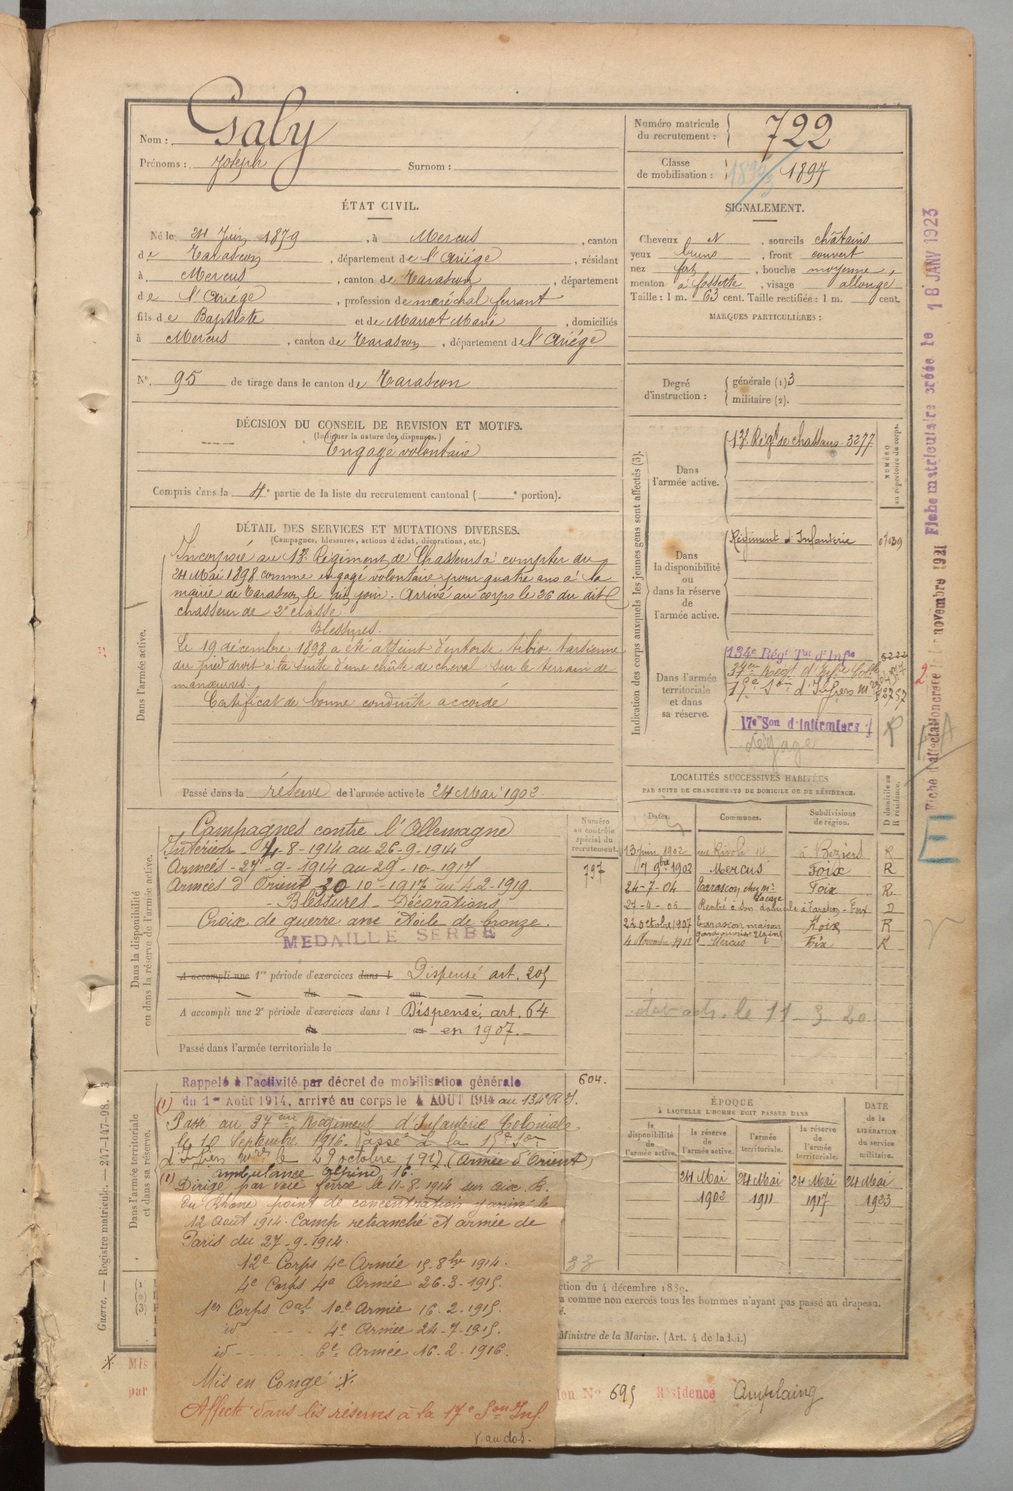 Nom : Galy
Prénoms : Joseph Surnom :
Numéro matricule du recrutement : 722
Classe de mobilisation : 1897
ÉTAT CIVIL.
Né le 24 Juin 1879, à Mercus, canton
de Tarascon, département de l'Ariège, résidant
à Mercus, canton de Tarascon, département
de l'Ariège, profession de maréchal ferrant
fils de Baptiste et de Marrot Marie, domiciliés
à Mercus, canton de Tarascon, département de l'Ariège
N° 95 de tirage dans le canton de Tarascon
SIGNALEMENT.
Cheveux et, sourcils châtains
yeux bruns, front couvert
nez fort, bouche moyenne,
menton à fossette, visage allongé
Taille : 1 m. 63 cent. Taille rectifiée : 1 m. cent.
MARQUES PARTICULIÈRES :
Degré d'instruction : générale (1) 3
militaire (2).
DÉCISION DU CONSEIL DE REVISION ET MOTIFS.
(Indiquer la nature des dispenses.)
Engagé volontaire
Compris dans la 4e partie de la liste du recrutement cantonal ( e portion).
DÉTAIL DES SERVICES ET MUTATIONS DIVERSES.
(Campagnes, blessures, actions d'éclat, décorations, etc.)
Dans l'armée active.
Incorporé au 13e Régiment de Chasseurs à compter du
24 Mai 1898 comme engagé volontaire pour quatre ans à la
mairie de Tarascon le dit jour. Arrivé au corps le 26 du dit
chasseur de 2e classe.
Blessures.
Le 19 décembre 1898 a été atteint d'entorse tibio tarsienne
du pied droit à la suite d'une chûte de cheval sur le terrain de
manœuvres.
Certificat de bonne conduite accordé
Passé dans la réserve de l'armée active le 24 Mai 1902
Indication des corps auxquels les jeunes gens sont affectés (3).
NUMÉRO au répertoire du corps.
Dans l'armée active.
13e Régt de chasseurs 3277
Dans la disponibilité ou dans la réserve de l'armée active.
Régiment d'Infanterie 07139
Dans l'armée territoriale et dans sa réserve.
134e Régt Tal d'Infie
37e Régt d'Infie Colle
15e Son d'Infirs
17e Son d'Infirmiers
Dégagé
Fiche matriculaire créée le 18 JANV 1923
novembre 1921
Dans la disponibilité ou dans la réserve de l'armée active.
Campagnes contre l'Allemagne
Intérieur 4-8-1914 au 26-9-1914
Armées 27-9-1914 au 29-10-1917
Armées d'Orient 30-10-1917 au 4-2-1919
Blessures - Décorations
Croix de guerre avec étoile de bronze.
MEDAILLE SERBE
A accompli une 1re période d'exercices dans l Dispensé art. 205
du au
A accompli une 2e période d'exercices dans l Dispensé, art. 64
du au en 1907.
Passé dans l'armée territoriale le
Numéro au contrôle spécial du recrutement.
797
LOCALITÉS SUCCESSIVES HABITÉES
PAR SUITE DE CHANGEMENTS DE DOMICILE OU DE RÉSIDENCE.
Dates. Communes. Subdivisions de région. D domicile ou R résidence.
13 juin 1902 rue Rivoli à Béziers R
7 9bre 1902 Mercus Foix R
24-7-04 Tarascon Foix R
Rentré à son domicile à Tarascon Foix D
22 octobre 1907 Tarascon maison Foix R
4 Novembre 1912 Mercus Foix R
le 11-3-20
Dans l'armée territoriale et dans sa réserve.
Rappelé à l'activité par décret de mobilisation générale
du 1er Août 1914, arrivé au corps le 4 AOUT 1914 au 134e R.I.
604.
Passé au 37eme Régiment d'Infanterie Coloniale
le 10 Septembre 1916. Passé à la 15e Son
d'Infiers le 29 octobre 1917 (Armée d'Orient)
ambulance alpine 16.
(1) Dirigé par voie ferrée le 11-8-1914 sur
du Rhône point de concentration
12 août 1914. Camp retranché et armée de
Paris du 27-9-1914.
12e Corps 4e Armée 15-8bre 1914.
4e Corps 4e Armée 26-3-1915.
1er Corps Cal 10e Armée 16-2-1915.
id 4e Armée 24-7-1915.
id 6e Armée 16-2-1916.
Mis en Congé
Affecté dans les réserves à la 17e Son Inf
V. au dos.
ÉPOQUE
À LAQUELLE L'HOMME DOIT PASSER DANS
DATE DE LA LIBÉRATION du service militaire.
la disponibilité de l'armée active. la réserve de l'armée active. l'armée territoriale. la réserve de l'armée territoriale.
24 Mai 1902 24 Mai 1911 24 Mai 1917 24 Mai 1923
ction du 4 décembre 1889.
a comme non exercés tous les hommes n'ayant pas passé au drapeau.
Ministre de la Marine. (Art. 4 de la loi.)
Mis
par
ion N° 695 Résidence Amplaing
Guerre. — Registre matricule. — 247-147-98.